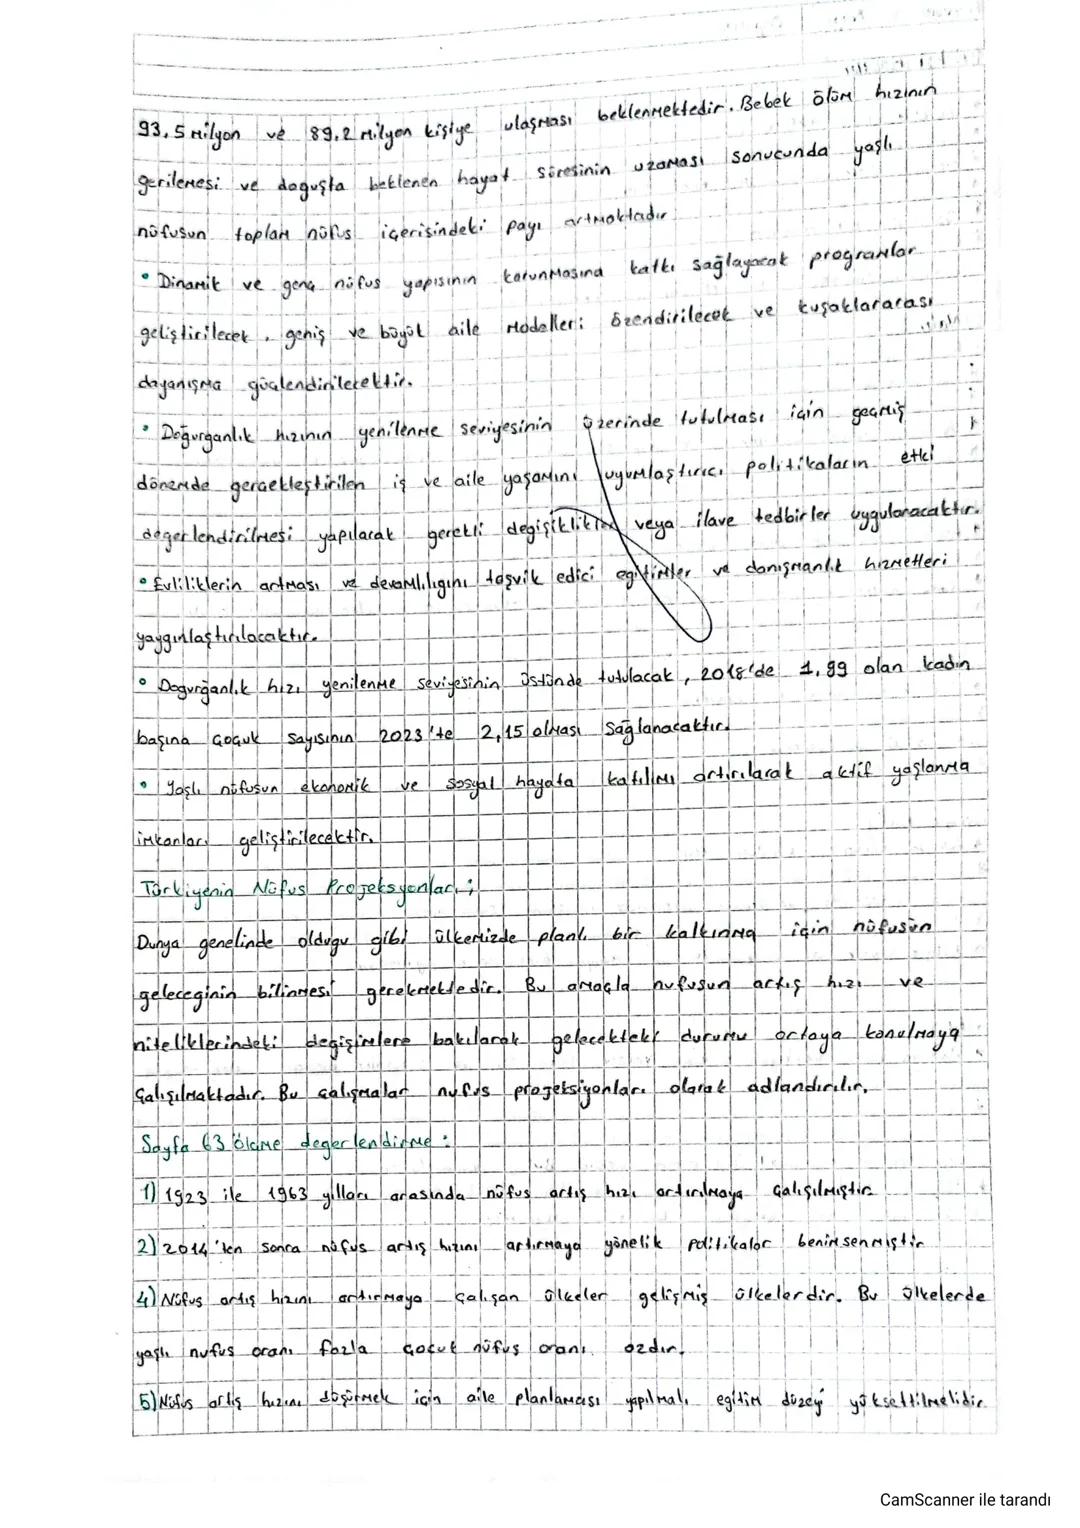 93,5 milyon ve 89,2 milyon kişiye ulaşması beklenmektedir. Bebek ölüm hızının
gerilemesi ve doğuşta beklenen hayat süresinin uzaması sonucunda yaşlı
nüfusun toplam nüfus içerisindeki payı artmaktadır.
• Dinamik ve genç nüfus yapısının korunmasına katkı sağlayacak programlar
geliştirilecek, geniş ve büyük aile modelleri özendirilecek ve kuşaklararası
dayanışma güçlendirilecektir.
• Doğurganlık hızının yenilenme seviyesinin üzerinde tutulması için geçmiş
dönemde gerçekleştirilen iş ve aile yaşamını uyumlaştırıcı politikaların etki
değerlendirilmesi yapılarak gerekli değişiklikler veya ilave tedbirler uygulanacaktır.
• Evliliklerin artması ve devamlılığını teşvik edici eğitimler ve danışmanlık hizmetleri
yaygınlaştırılacaktır.
• Dogurğanlık hızı yenilenme seviyesinin üstünde tutulacak, 2018'de 1,99 olan kadın
başına çocuk sayısının 2023'te 2,15 olması sağlanacaktır.
• Yaşlı nüfusun ekonomik ve sosyal hayata katılımı artırılarak aktif yaşlanma
imkanları geliştirilecektir.
Türkiyenin Nüfus Projeksyonları;
Dunya genelinde olduğu gibi ülkemizde planlı bir kalkınma için nüfusün
geleceginin bilinmesi gerekmektedir. Bu amaçla nufusun artış hızı ve
niteliklerindeki değişimlere bakılarak gelecekteki durumu ortaya konulmaya
çalışılmaktadır. Bu çalışmalar nufus projeksiyonları olarak adlandırılır.
Sayfa 63 ölçme degerlendirme :
1) 1923 ile 1963 yılları arasında nüfus artış hızı artırılmaya çalışılmıştır
2) 2014'ten sonra nüfus artış hızını artırmaya yönelik politikalar benimsenmiştir
4) Nüfus artış hızını artırmaya çalışan ülkeler gelişmiş ülkelerdir. Bu ülkelerde
yaşlı nufus oranı fazla çocuk nüfus oranı azdır.
5) Nüfus artış hızını düşürmek için aile planlaması yapılmalı eğitim düzeyi yükseltilmelidir
CamScanner ile tarandı